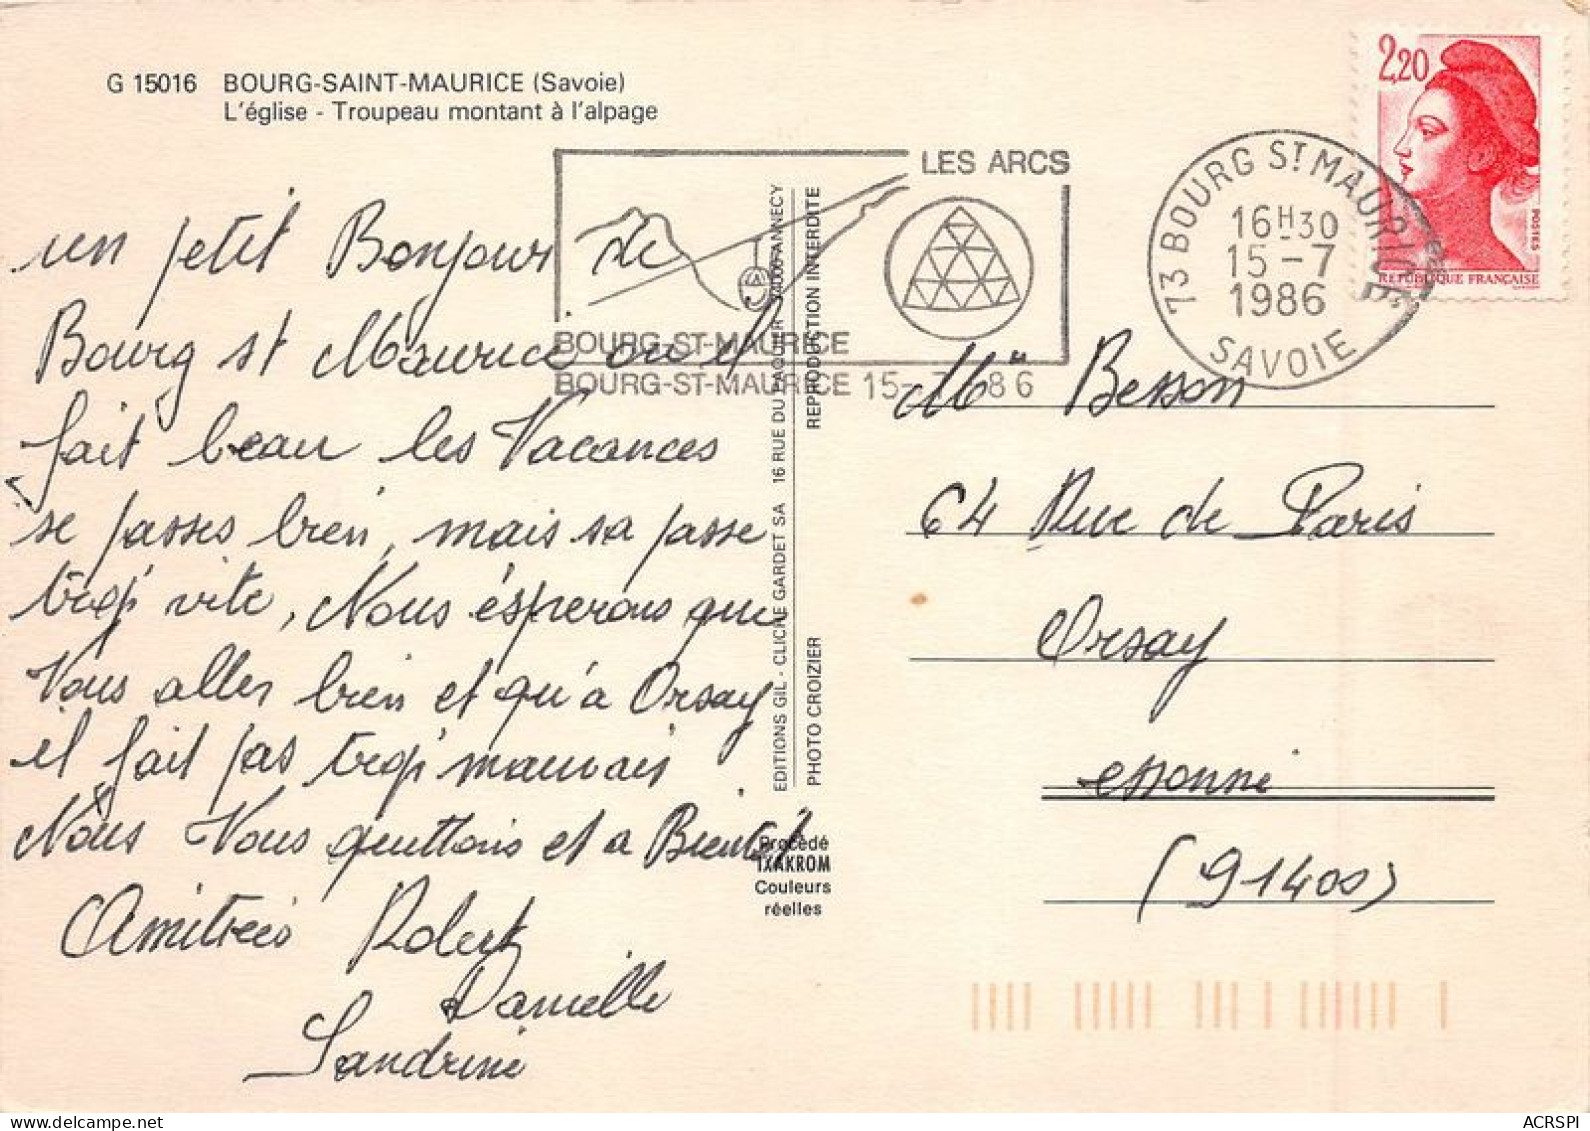 G 15016 BOURG-SAINT-MAURICE (Savoie)
L'église - Troupeau montant à l'alpage
LES ARCS
BOURG-ST-MAURICE
BOURG-ST-MAURICE 15-7 86
73 BOURG ST MAURICE
16H30
15-7
1986
SAVOIE
2,20
POSTES
REPUBLIQUE FRANÇAISE
un petit Bonjour de
Bourg st Maurice ou il
fait beau les Vacances
se passes bien, mais sa passe
trop vite, Nous ésperons que
Vous aller bien et qu'a Orsay
il fait pas trop mauvais
Nous Vous quittons et a Bientot
Amitiés Robert
Danielle
Sandrine
EDITIONS GIL - CLICHE GARDET SA 16 RUE DU PAQUIER 74000 ANNECY
PHOTO CROIZIER REPRODUCTION INTERDITE
Procédé
IXAKROM
Couleurs
réelles
Besson
64 Rue de Paris
Orsay
essonne
(91400)
ACRSPI